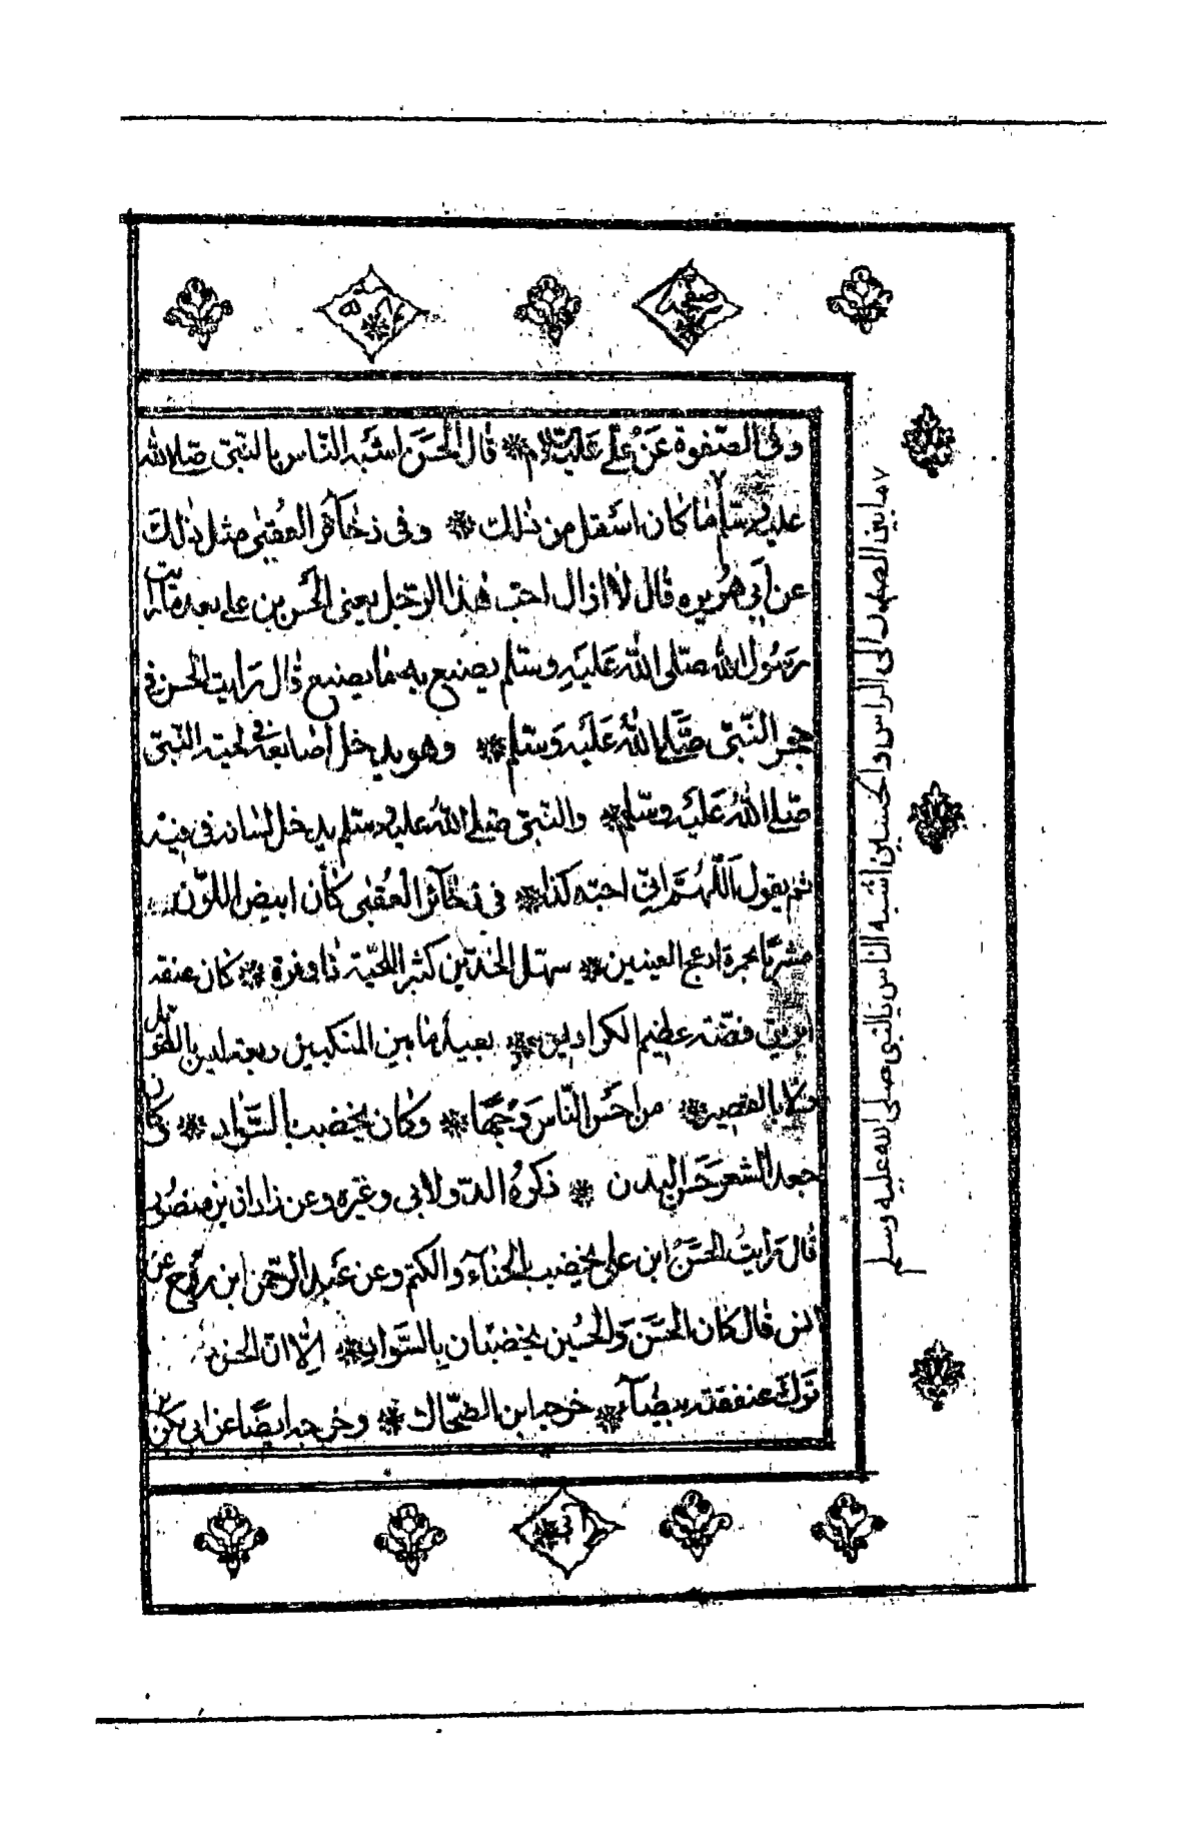 وفى الصّفوة عَنْ عُلّى عَليه السّلام قال الحَسَن اشبَه النّاس بالنّبىّ صَلى الله
عليه وسلّم ما كان اسَفل من ذلك وفى ذخآئر العُقبىٰ مثل ذٰلكَ
عن اَبى هُريره قال لا ازال احبّ هٰذا الرّجل يعنى الحَسن بن على بعد ما رايت
رَسُول الله صَلّى الله عَليَهِ وسَلّم يصنع به مٰا يصنع قال رَايت الحسن فى
حجر النّبىّ صَلّى اللهُ عَلَيه وَسَلّم وهو يدخل اصَابعَه فى لحيته النّبىّ
صَلّى اللهُ عَليَه وسّلم والنّبىّ صَلّى اللهُ عليه وسَلّم يدخل لسَانه فى فيته
ثم يقول اَللّهُمَّ اِنّىِ احبّه كذا فى ذخآئر العُقبىٰ كٰان ابيض اللّون
مشربًا بحمرة ادعج العينين سهَل الخدّين كثير اللحيّة ذا وفرة كان عنقه
ابريق فضّته عظيم الكراديس بعيد مٰا بين المنكبين ربعه ليس بالطّويل
ولا بالقصير من احسَن النّاسَ وَجهًا وكٰان يخضب بالسّواد كٰان
جعد الشعر حَسن البدن ذكرهُ الدّولابى وغيره وعن زاذان بن منصُور
قٰال رَايتُ الحسَنُ ابن على يخضب بالحنآء والكتم وعن عَبد الرّحمن ابن رفيع عن
انس قٰال كٰان الحسَن وَالحسُين يخضبٰان بالسَّواد اِلّا انّ الحسن
تَرك عنفقته بيضٰآء خرجه ابن الضّحّاك وخرجه ايضًا عن ابى بكر بن
٧ ما بين الصدر الى الراس والحسين اشبه الناس بالنبى صلى الله عليه وسلم